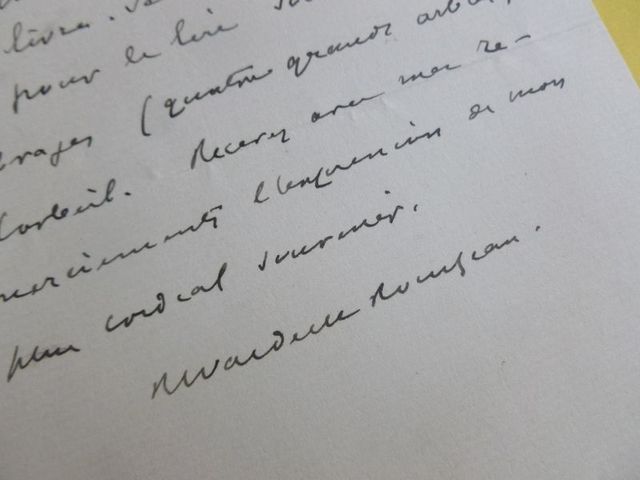 livre. Je
pour le lire sous
(quatre grands arbres,
Corbeil. Recevez avec mes re-
merciements l'expression de mon
plus cordial souvenir.
Rousseau.